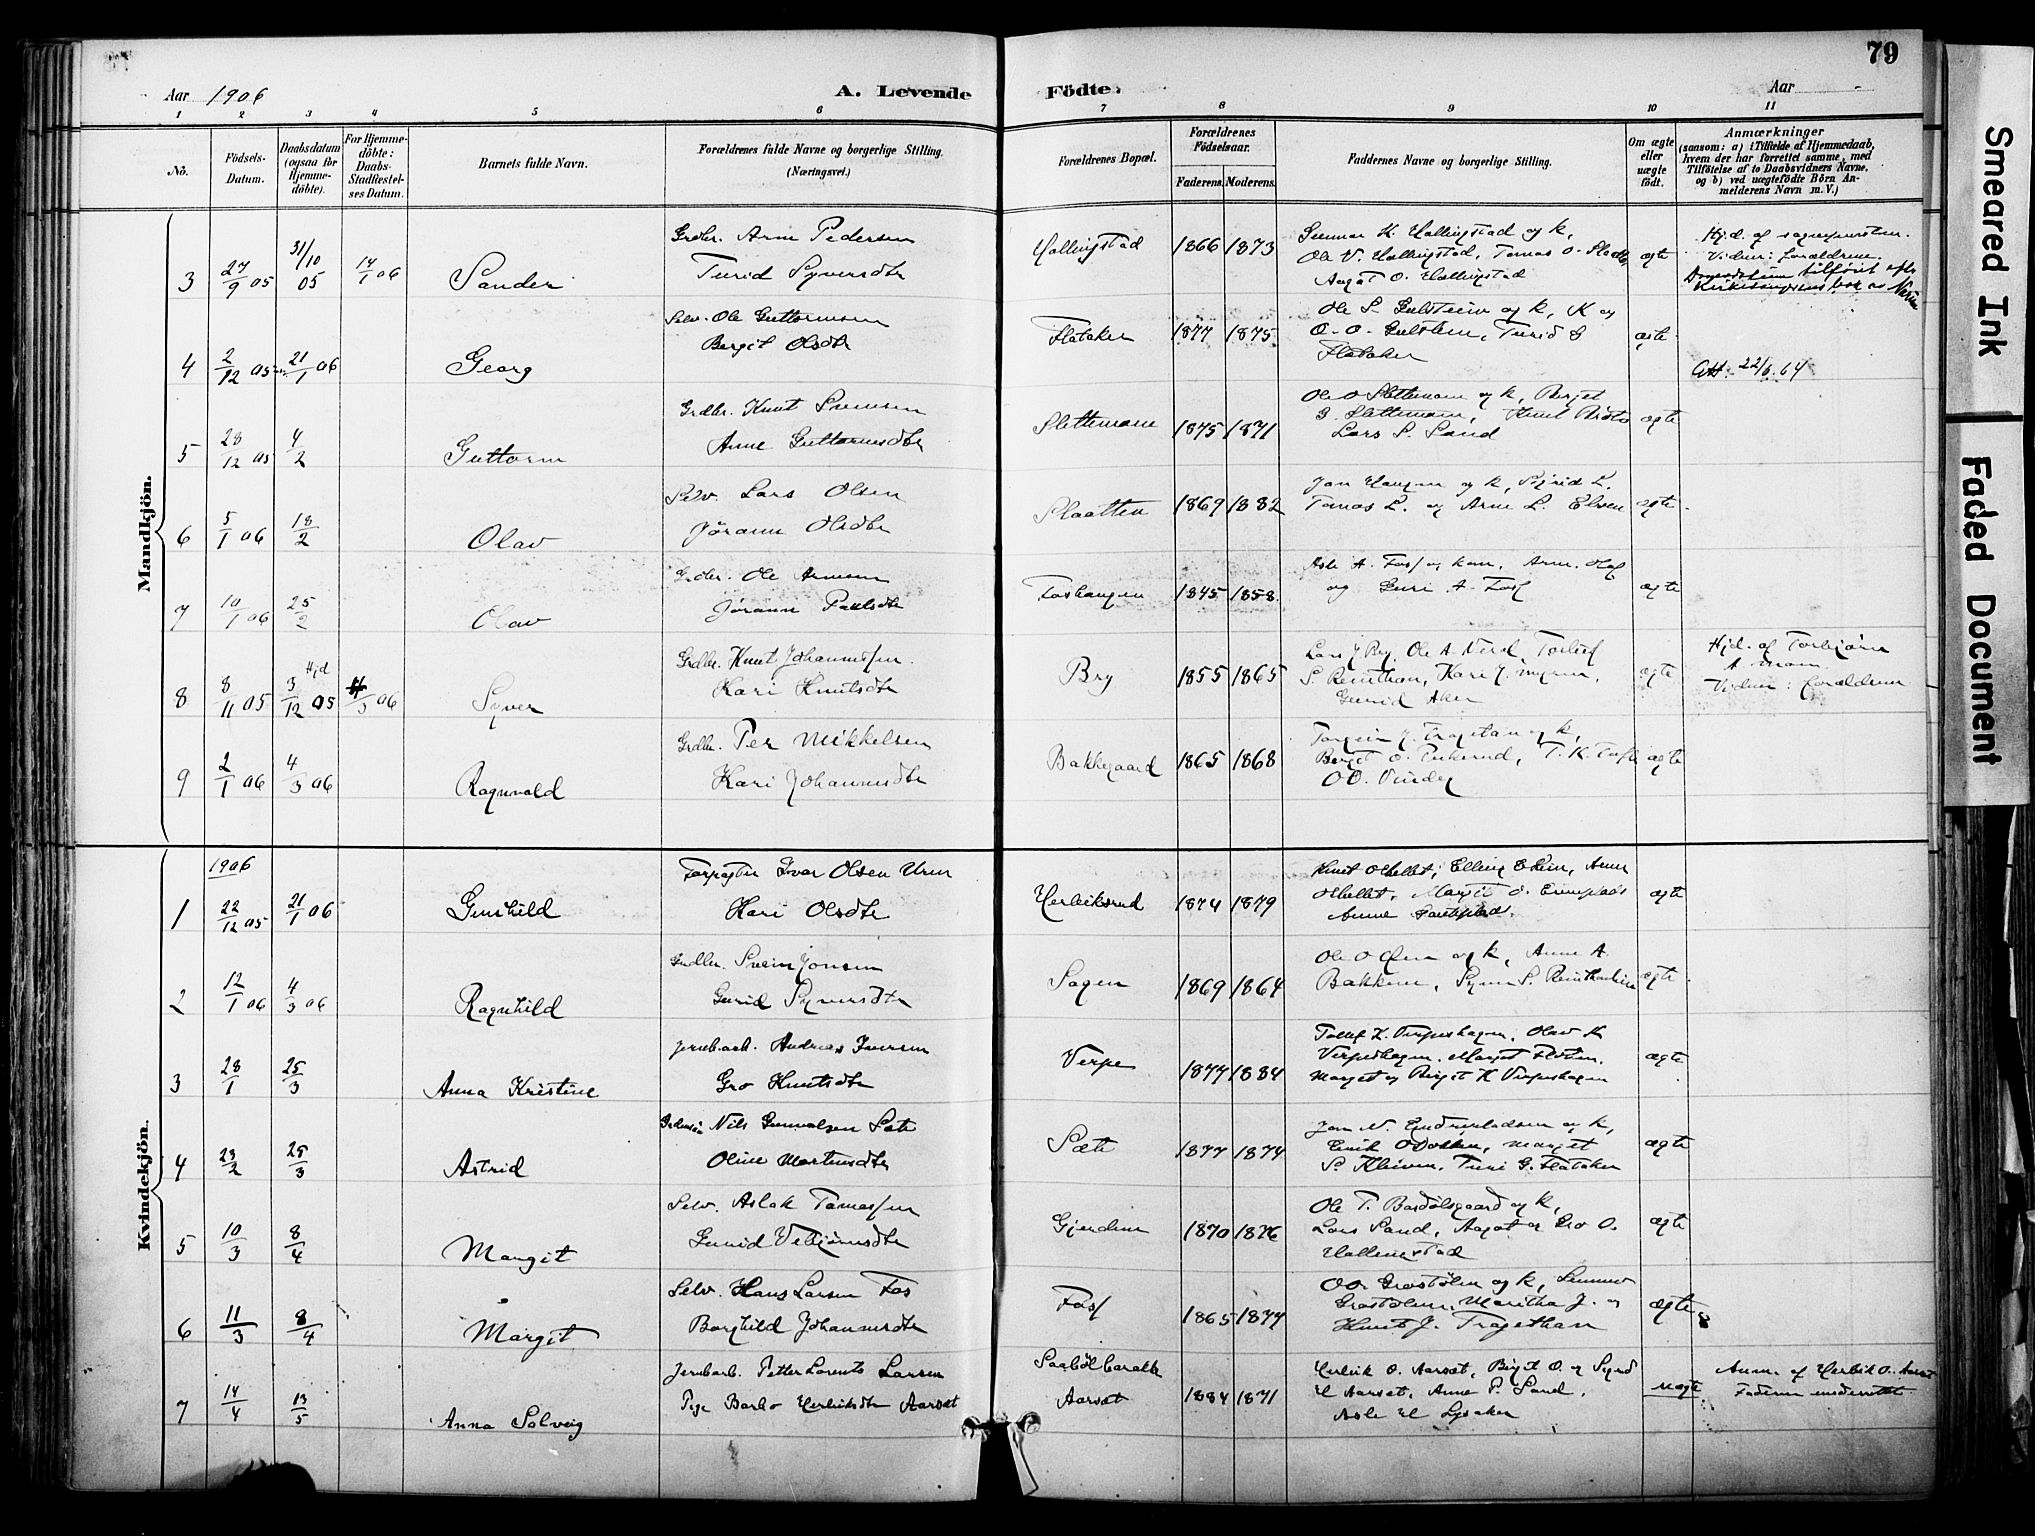 79
Aar 1906
A. Levende
Födte.
Aar -
1 2 3 4 5 6 7 8 9 10 11
No.
Födsels-Datum.
Daabsdatum (ogsaa för Hjemme-döbte).
For Hjemme-döbte: Daabs-Stadfæstel-ses Datum.
Barnets fulde Navn.
Forældrenes fulde Navne og borgerlige Stilling. (Næringsvei.)
Forældrenes Bopæl.
Forældrenes Födselsaar.
Faderens.
Moderens.
Faddernes Navne og borgerlige Stilling.
Om ægte eller uægte födt.
Anmærkninger
(saasom: a) i Tilfælde af Hjemmedaab,
hvem der har forrettet samme, med
Tilföielse af to Daabsvidners Navne,
og b) ved uægtefödte Börn An-
melderens Navn m. V.)
Mandkjön.
3 27/9 05 31/10 05 14/1 06 Sander
Grdbr. Arne Pedersen
Turid Syversdtr
Hallingstad 1866 1873
Gunnar K. Hallingstad og k,
Ole V. Hallingstad, Tomas O.
Aagot O. Hallingstad
ægte
Hjd. af sognepresten.
Vidner: forældrene.
4 2/12 05 21/1 06 Georg
Selv. Ole Guttormsen
Bergit Olsdtr
Flataker 1877 1875
Ole S. Gulsteim og k, K og
O. O. Gulsteim, Turid G
Flataker
ægte
22/6.64
5 28/12 05 4/2 Guttorm
Grdbr. Knut Svensen
Anne Guttormsdtr
Slettemoen 1875 1871
Ole O Slettemoen og k, Berget
G. Slettemoen, Knut
Lars S. Sand
ægte
6 5/1 06 18/2 Olav
Selv Lars Olsen
Jørann Olsdtr
Slaatten 1869 1882
Jon Haugen og k, Sigrid L.
Tomas L. og Arne L. Elven
ægte
7 10/1 06 25/2 Olav
Grdbr. Ole Arnesen
Jørann Paulsdtr
Foshaugen 1845 1858
Asle A. Foss og kone, Arne Olaf
og Guri A. Foss
ægte
8 8/11 05 3/12 05 Hjd /3 06 Syver
Grdbr. Knut Johannessen.
Kari Knutsdtr
Bry 1855 1865
Lars J Bry, Ole A. Torleif
S. Reinthon, Kari J. Myren,
Gunrid Aker
ægte
Hjd. af Torbjørn
A. Moen
Vidner: forældrene
9 2/1 06 4/3 06 Ragnvald
Grdbr. Per Mikkelsen
Kari Johannesdtr
Bakkegaard 1865 1868
Torgeir J. Trageton og k,
Berget O. T. K. Foss
O O. Vindeg
ægte
Kvindekjön.
1906
1 22/12 05 21/1 06 Gunhild
Forpagter Ivar Olsen Uren
Kari Olsdtr
Herbiksrud 1874 1879
Knut Olhellet, Elling E Lien, Anne
Olhellet, Margit O.
Anne
ægte
2 12/1 06 4/3 06 Ragnhild
Grdbr. Svein Jonsen
Gunrid Syversdtr
Sagen 1869 1864
Ole O Lien og k, Anne A.
Bakkene, Syver S. Reinthonlien
ægte
3 28/1 25/3 Anna Kristine
Jernb.arb. Andreas Iversen
Gro Knutsdtr
Verpe 1877 1884
Tollef K. Verpeshagen, Olav K
Verpeshagen, Marget Flaten,
Marget og Birgit K Verpeshagen
ægte
4 23/2 25/3 Astrid
Nils Gunvalsen Sæte
Oline Martinsdtr
Sæte 1877 1874
Jon N. og k,
Eirik O Dokken, Marget
S. Kleiven, Turi G. Flataker
ægte
5 10/3 8/4 Margit
Selv. Aslak Tomassen
Gunrid Vebjørnsdtr
Gjerden 1870 1876
Ole T. Bardölsgaard og k,
Lars Sand, Aagot og Gro O.
Hallingstad
ægte
6 11/3 8/4 Margit
Selv. Hans Larsen Fos
Borghild Johannesdtr
Foss 1865 1877
O O. Grøstølen og k, Gunnar
Grøstølen, Maritha J. og
Knut J. Tragethon
ægte
7 14/4 13/5 Anna Solveig
Jernbarb. Petter Lorents Larsen
Pige Barbo Herbiksdtr Aarset
Aarset 1884 1871
Herbik O. Aarset, Birgit O. og Sigrid
H Aarset, Anne P. Sand,
Asle H Lysaker
uægte
Anm. af Herbik O. Aarset
Faderen
Smeared Ink
Faded Document